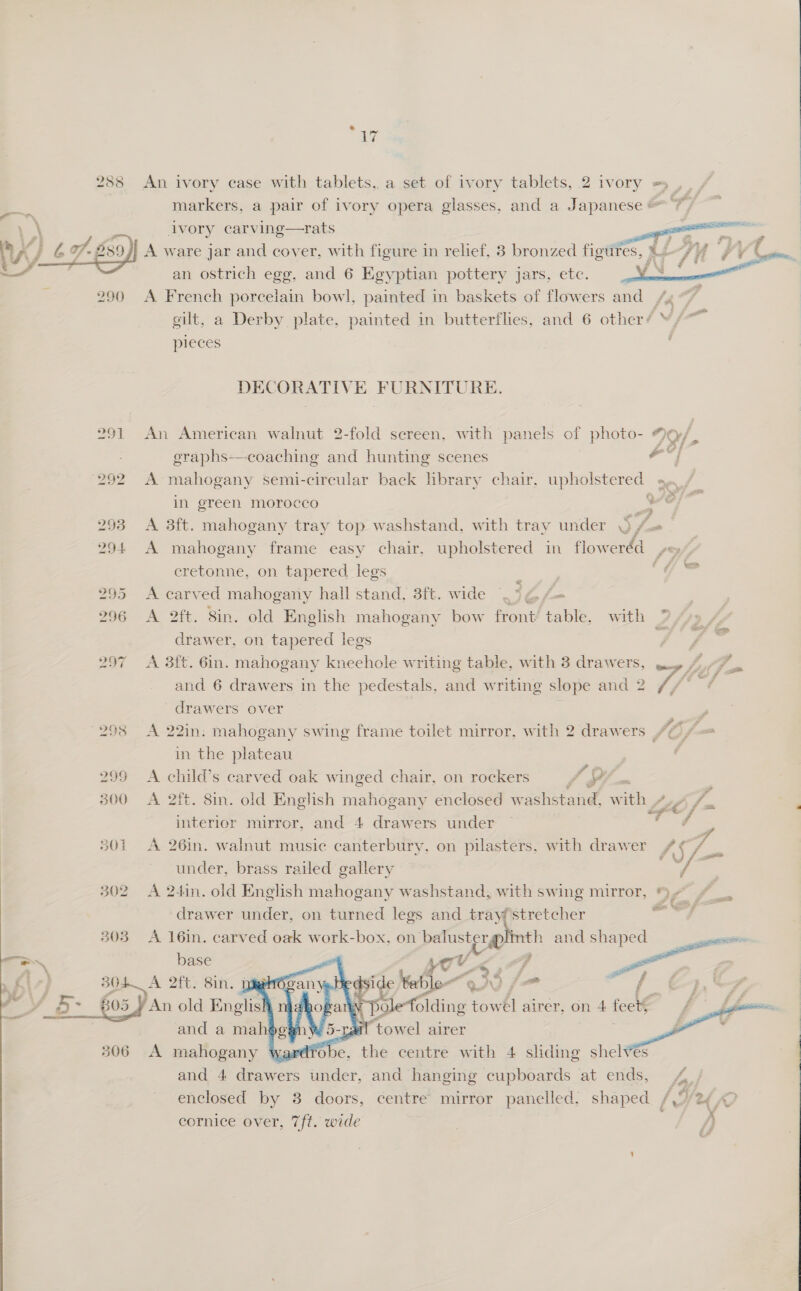 17
288 An ivory case with tablets, a set of ivory tablets, 2 ivory
markers, a pair of ivory opera glasses, and a Japanese
ivory carving—rats
289 A ware jar and cover, with figure in relief, 3 bronzed figures,
an ostrich egg, and 6 Egyptian pottery jars, etc.
290 A French porcelain bowl, painted in baskets of flowers and
gilt, a Derby plate, painted in butterflies, and 6 other
pieces
DECORATIVE FURNITURE.
291 An American walnut 2-fold screen, with panels of photo-
graphs—coaching and hunting scenes
292 A mahogany semi-circular back library chair, upholstered
in green morocco
293 A 3ft. mahogany tray top washstand, with tray under
294 A mahogany frame easy chair, upholstered in flowered
cretonne, on tapered legs
295 A carved mahogany hall stand, 3ft. wide
296 A 2ft. 8in. old English mahogany bow front table, with
drawer, on tapered legs
297 A 3ft. 6in. mahogany kneehole writing table, with 3 drawers,
and 6 drawers in the pedestals, and writing slope and 2
drawers over
298 A 22in. mahogany swing frame toilet mirror, with 2 drawers
in the plateau
299 A child's carved oak winged chair, on rockers
300 A 2ft. 8in. old English mahogany enclosed washstand, with
interior mirror, and 4 drawers under
301 A 26in. walnut music canterbury, on pilasters, with drawer
under, brass railed gallery
302 A 24in. old English mahogany washstand, with swing mirror,
drawer under, on turned legs and tray stretcher
303 A 16in. carved oak work-box, on baluster plinth and shaped
base
304 A 2ft. 8in. mahogany bedside table
305 An old English mahogany pole folding towel airer, on 4 feet
and a mahogany 5-rail towel airer
306 A mahogany wardrobe, the centre with 4 sliding shelves
and 4 drawers under, and hanging cupboards at ends,
enclosed by 3 doors, centre mirror panelled, shaped
cornice over, 7ft. wide